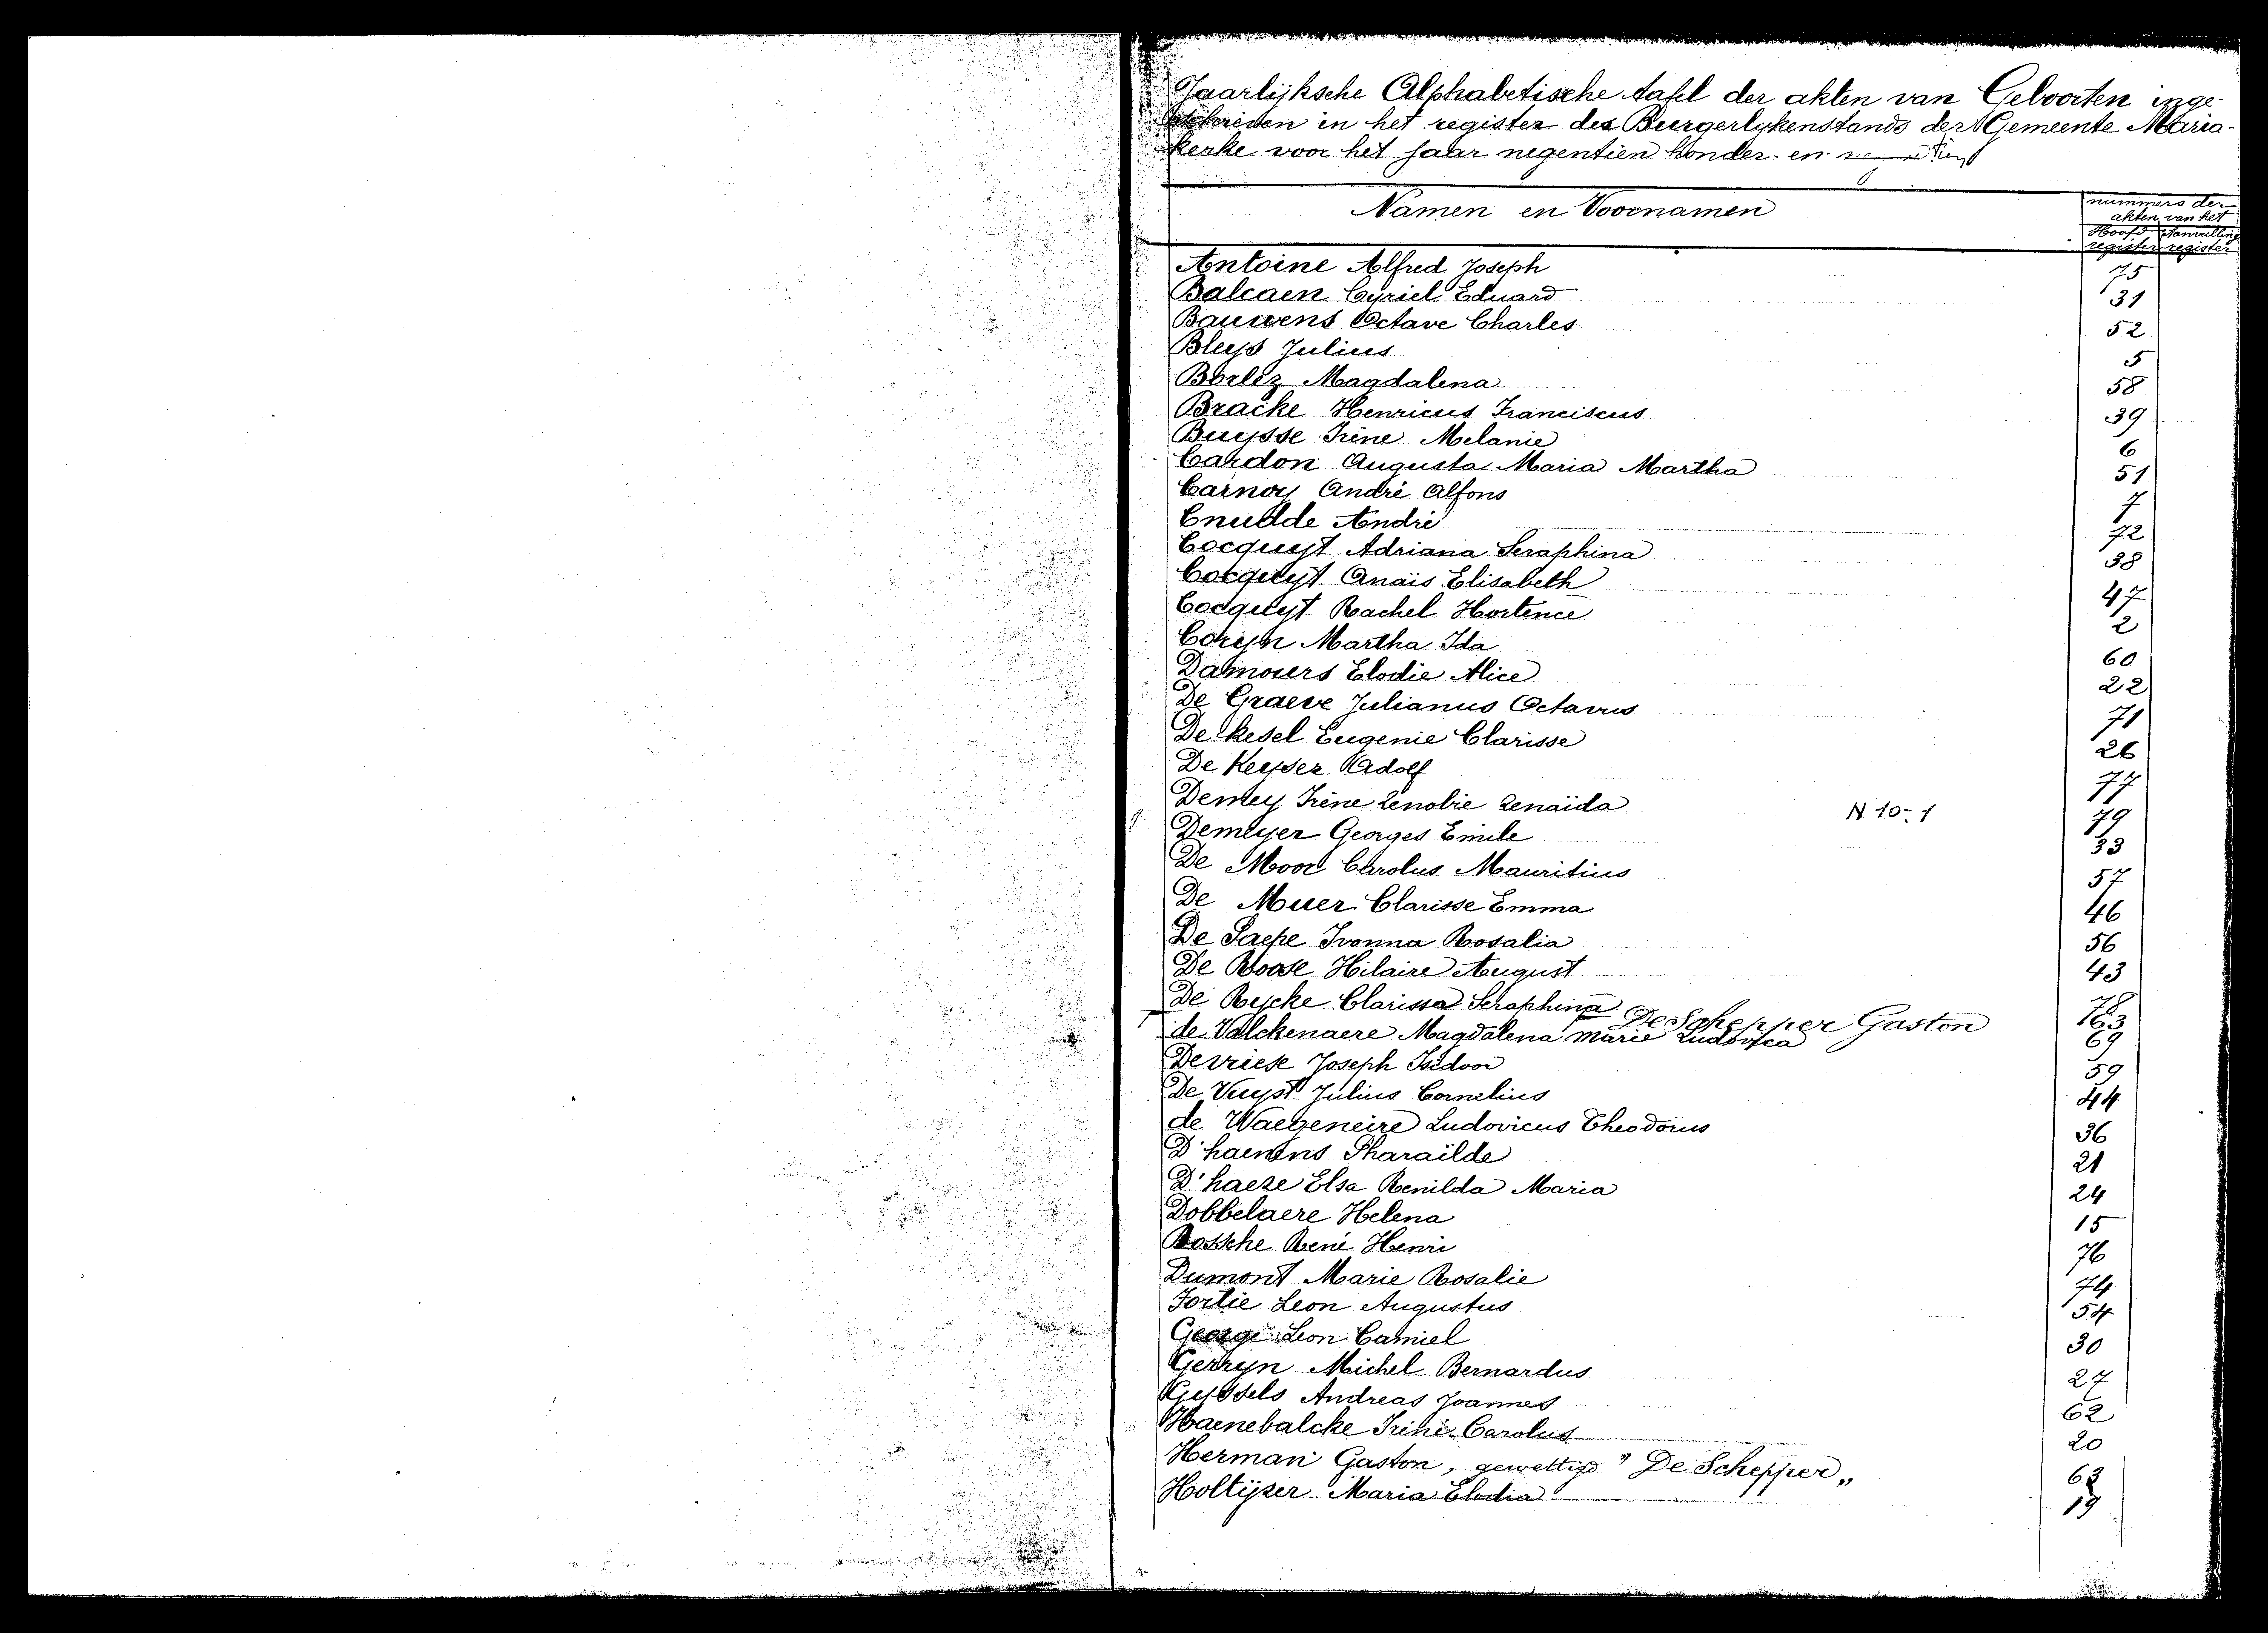 Jaarlijksche Alphabetische tafel der akten van Geboorten inge-
schreven in het register des Burgerlykenstands der Gemeente Maria-
kerke voor het jaar negentien honder en
Namen en Voornamen
nummers der
akten van het
Hoofd Aanvulling
register register
Antoine Alfred Joseph 75
Balcaen Cyriel Eduard 31
Bauwens Octave Charles 52
Bluys Julius 5
Borlez Magdalena 58
Bracke Henricus Franciscus 39
Buysse Irène Melanie 6
Cardon Augusta Maria Martha 51
Carnoy André Alfons 7
Cnudde André 72
Cocquyt Adriana Seraphina 38
Cocquyt Anaïs Elisabeth 47
Cocquyt Rachel Hortence 2
Coryn Martha Ida 60
Damours Elodie Alice 22
De Graeve Julianus Octavus 71
De Kesel Eugenie Clarisse 26
De Keyser Adolf 77
Demey Irène Zenobie Zenaïda N 10-1 79
Demeyer Georges Emile 33
De Moor Carolus Mauritius 57
De Muer Clarisse Emma 46
De Paepe Ivonna Rosalia 56
De Roose Hilaire August 43
De Rycke Clarissa Seraphina 78
De Schepper Gaston 63
de Valckenaere Magdalena Marie Ludovica 69
Devriese Joseph Isidoor 59
De Vuyst Julius Cornelius 44
de Waegeneire Ludovicus Theodorus 36
D'haenens Pharaïlde 21
D'haeze Elsa Renilda Maria 24
Dobbelaere Helena 15
Dossche René Henri 76
Dumont Marie Rosalie 74
Fortie Leon Augustus 54
George Leon Camiel 30
Gerryn Michel Bernardus 27
Gyssels Andreas Joannes 62
Haenebalcke Irénée Carolus 20
Herman Gaston, gewettigd "De Schepper„ 63
Holtyzer Maria Elodia 19